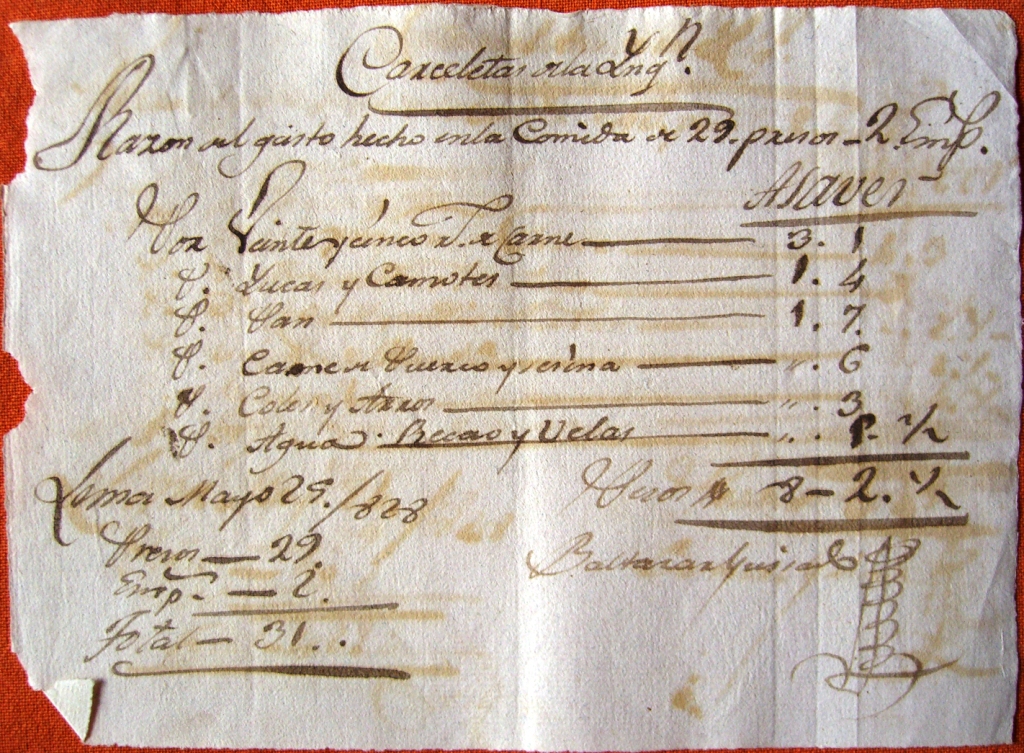 Carceletas de la Ynqn.
Razon del gasto hecho en la Comida de 29. presos - 2. Emp.
A saver
Por Veinte y cinco de Carne 3. 1
P. Yucas y Camotes 1. 4
P. Pan 1. 7.
P. Carne de Puerco y 6
P. Coles y Arros 3
P. Agua. Recao y Velas 1/2
Lima Mayo 25. /828
Pesos 8 - 2. 1/2
Presos - 29.
Emp. - 2.
Total - 31..
Baltazar